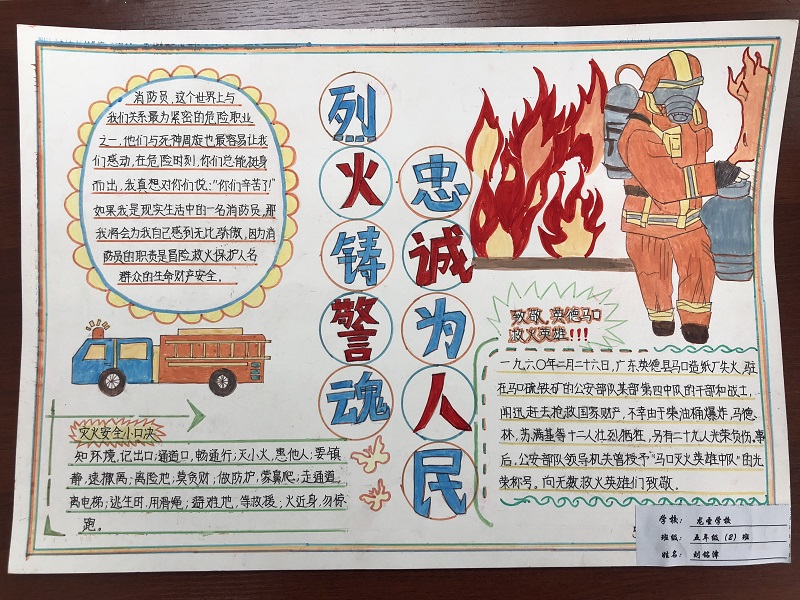 消防员,这个世界上与
我们关系最为紧密的危险职业
之一,他们与死神周旋也最容易让我
们感动,在危险时刻,你们总能挺身
而出,我真想对你们说:“你们辛苦了!”
如果我是现实生活中的一名消防员,那
我将会为我自己感到无比骄傲,因为消
防员的职责是冒险救火保护人名
群众的生命财产安全。
烈火铸警魂
忠诚为人民
致敬,英德马口
救火英雄!!!
一九六〇年二月二十六日,广东英德县马口造纸厂失火,驻
在马口硫铁矿的公安部队某部第四中队的干部和战士,
闻迅赶去抢救国家财产,不幸由于柴油桶爆炸,马德、
林、苏满基等十二人壮烈牺牲,另有二十九人光荣负伤。事
后,公安部队领导机关曾授予“马口灭火英雄中队”的光
荣称号。向无数救火英雄们致敬。
灾火安全小口决
知环境,记出口;通道口,畅通行;灭小火,惠他人;要镇
静,速撤离;离险地,莫贪财;做防护,雾鼻爬;走通道,
离电梯;逃生时,用滑绳;避难地,等救援,火近身,勿惊
跑。
学校: 龙台学校
班级: 五年级(2)班
姓名: 刘铭津